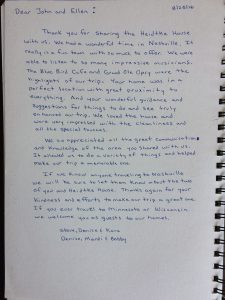 Dear John and Ellen:
Thank you for sharing the Heidtke House
with us. We had a wonderful time in Nashville. It
really is a fun town with so much to offer. We were
able to listen to so many impressive musicians.
The Blue Bird Cafe and Grand Ole Opry were the
highlights of our trip. Your home was in a
perfect location with great proximity to
everything. And your wonderful guidance and
suggestions for things to do and see truly
enhanced our trip. We loved the house and
were very impressed with the cleanliness and
all the special touches.
We so appreciated all the great communication
and knowledge of the area you shared with us.
It allowed us to do a variety of things and helped
make our trip a memorable one.
If we know anyone traveling to Nashville
we will be sure to let them know about the two
of you and Heidtke House. Thanks again for your
kindness and efforts to make our trip a great one.
If you ever travel to Minnesota or Wisconsin
we welcome you as guests to our homes.
Steve, Denise & Kara
Denise, Mandi & Bobby